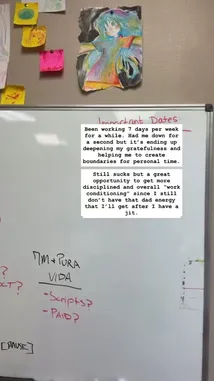 Important Dates:
Been working 7 days per week
for a while. Had me down for
a second but it's ending up
deepening my gratefulness and
helping me to create
boundaries for personal time.
Still sucks but a great
opportunity to get more
disciplined and overall "work
conditioning" since I still
don't have that dad energy
that I'll get after I have a
jit.
7M + PURA
VIDA
- Scripts?
- PAID?
[PAUSE]